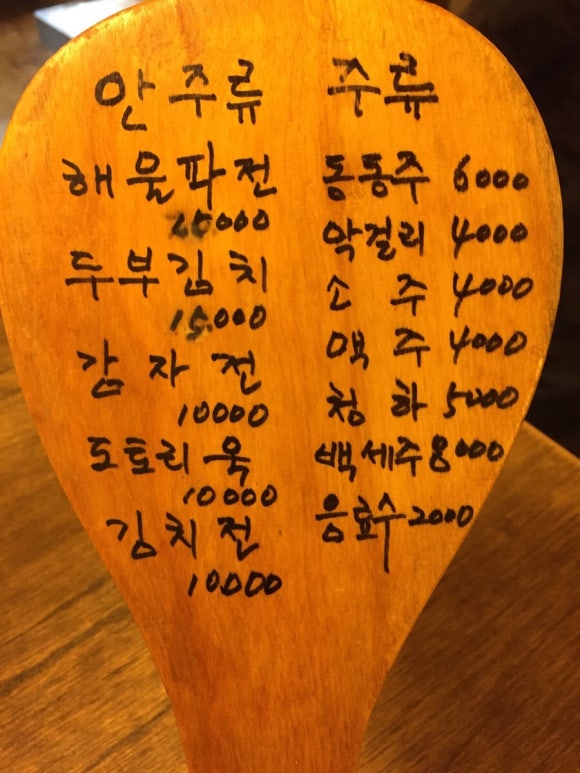 안주류
해물파전
두부김치
15000
감자전
10000
도토리묵
10000
김치전
10000
주류
동동주 6000
막걸리 4000
소 주 4000
맥 주 4000
청 하 5000
백세주 8000
음료수 2000